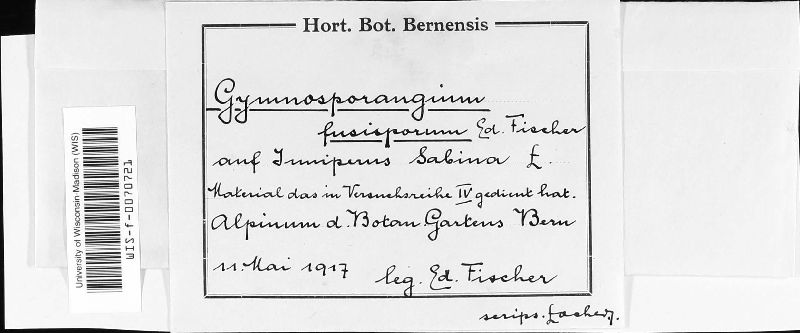 Hort. Bot. Bernensis
Gymnosporangium
fusisporum Ed. Fischer
auf Juniperus Sabina L.
Material das in Versuchsreihe IV gedient hat.
Alpinum d. Botan. Gartens Bern
11. Mai 1917 leg. Ed. Fischer
scrips.
University of Wisconsin-Madison (WIS)
WIS-f-0070721